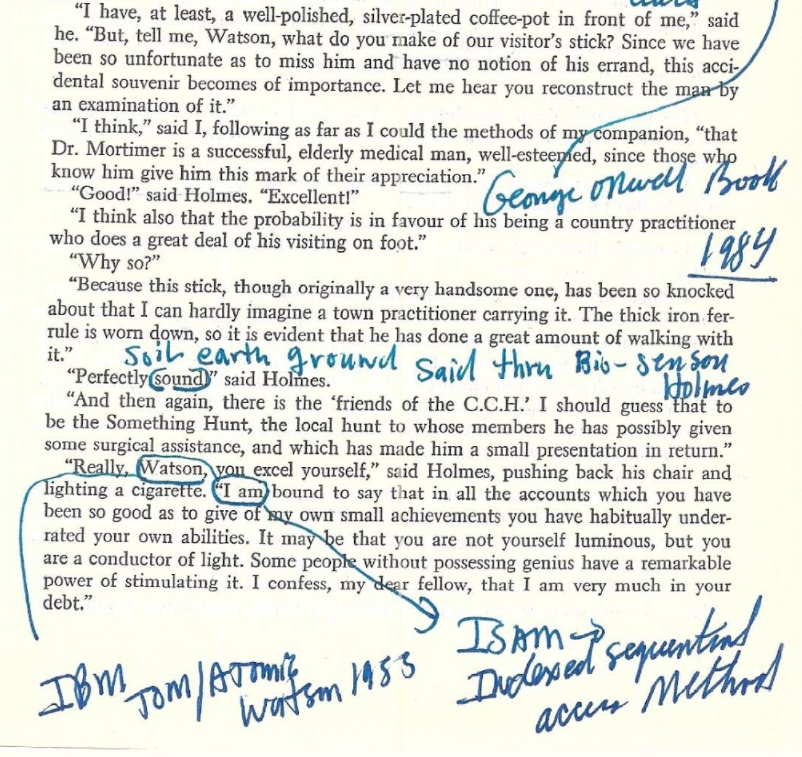 "I have, at least, a well-polished, silver-plated coffee-pot in front of me," said
he. "But, tell me, Watson, what do you make of our visitor's stick? Since we have
been so unfortunate as to miss him and have no notion of his errand, this acci-
dental souvenir becomes of importance. Let me hear you reconstruct the man by
an examination of it."
"I think," said I, following as far as I could the methods of my companion, "that
Dr. Mortimer is a successful, elderly medical man, well-esteemed, since those who
know him give him this mark of their appreciation."
George orwell Book
"Good!" said Holmes. "Excellent!"
"I think also that the probability is in favour of his being a country practitioner
who does a great deal of his visiting on foot."
1984
"Why so?"
"Because this stick, though originally a very handsome one, has been so knocked
about that I can hardly imagine a town practitioner carrying it. The thick iron fer-
rule is worn down, so it is evident that he has done a great amount of walking with
it."
Soil earth ground Said thru Bio-senson
Holmes
"Perfectly sound!" said Holmes.
"And then again, there is the 'friends of the C.C.H.' I should guess that to
be the Something Hunt, the local hunt to whose members he has possibly given
some surgical assistance, and which has made him a small presentation in return."
"Really, Watson, you excel yourself," said Holmes, pushing back his chair and
lighting a cigarette. "I am bound to say that in all the accounts which you have
been so good as to give of my own small achievements you have habitually under-
rated your own abilities. It may be that you are not yourself luminous, but you
are a conductor of light. Some people without possessing genius have a remarkable
power of stimulating it. I confess, my dear fellow, that I am very much in your
debt."
IBM Tom/Atomic
Watson 1953
ISAM →
Indexed sequential
access Method